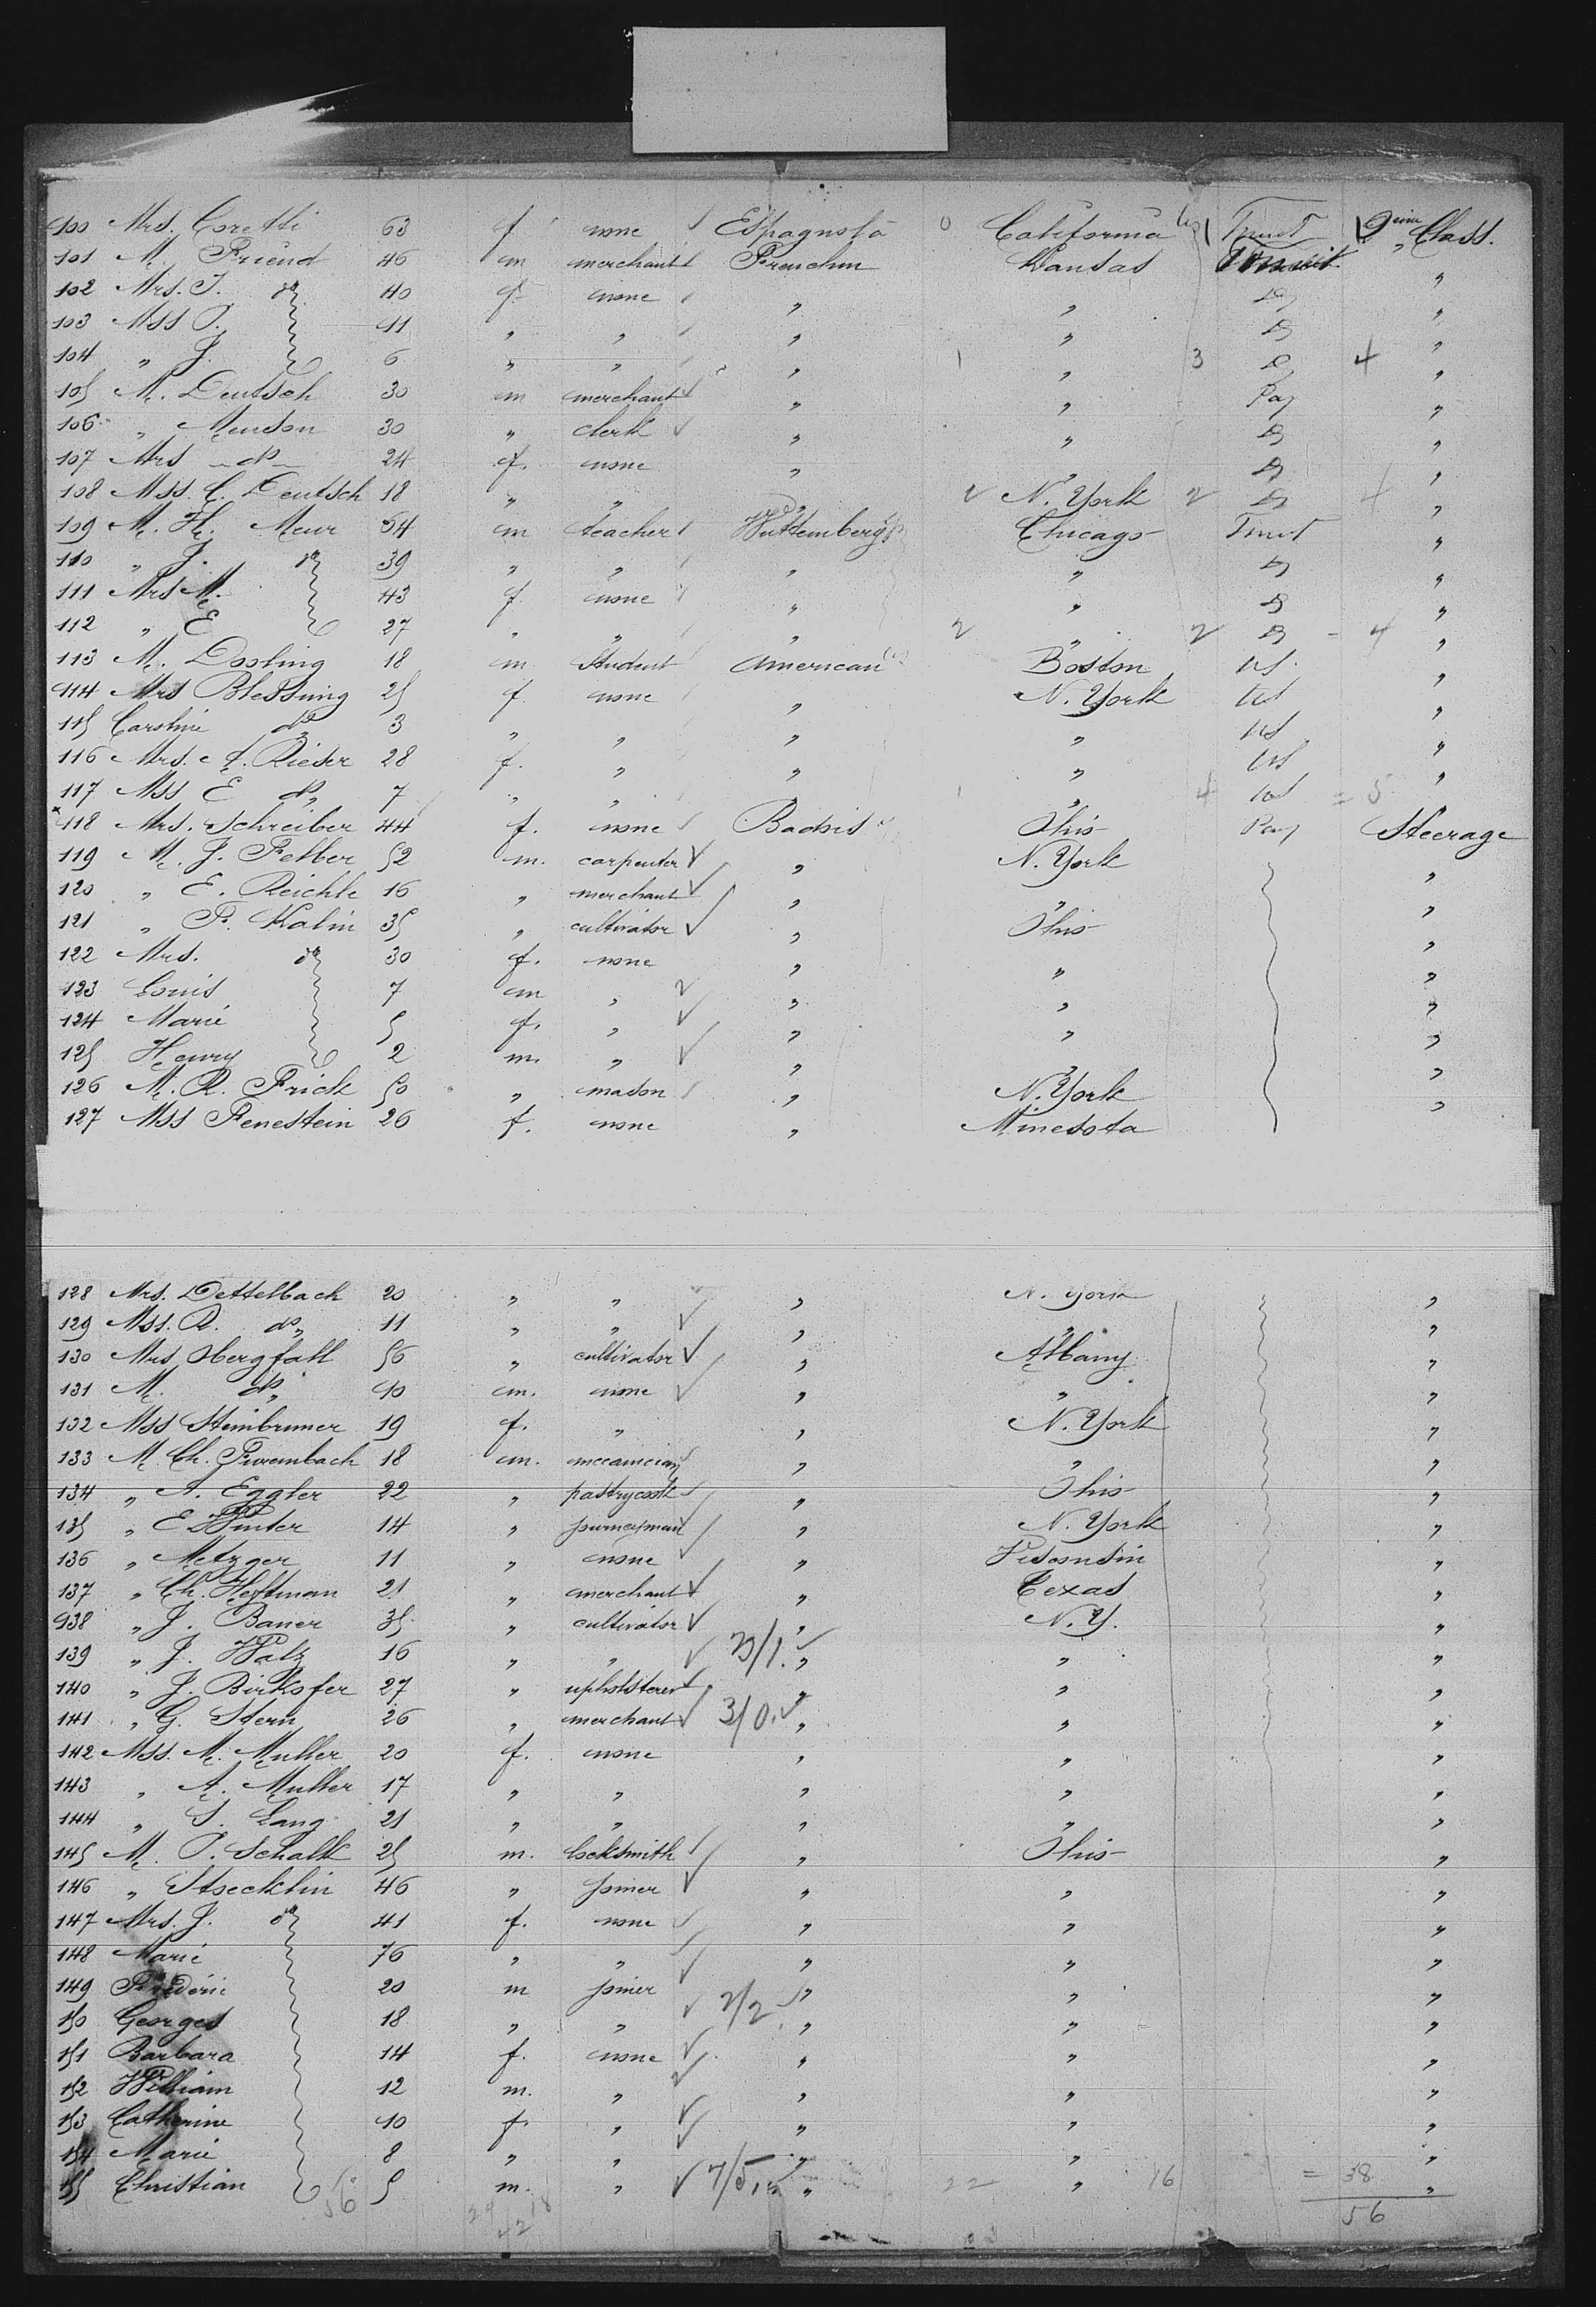 100 Mrs. Coretti 63 f none Espagnola 0 California 1 Trust 2eme Class.
101 M. Friend 46 m merchant Frenchm Kansas Transit "
102 Mrs. J. do 40 f none " " Do "
103 Mss P. 11 " " " " Do "
104 " J. 6 " " " 1 " 3 Do 4 "
105 M. Deutsch 30 m merchant " " Pay "
106 " Mendon 30 " clerk " " Do "
107 Mrs do 24 f. none " " Do "
108 Mss. C. Deutsch 18 " " " 2 N. York 2 Do 4 "
109 M. H. Meur 54 m teacher Wuttemberg Chicago Trust "
110 " J. do 39 " " " " Do "
111 Mrs M. 43 f. none " " Do "
112 " E 27 " " " 2 " 2 Do - 4 "
113 M. Dosling 18 m Student American Boston US "
114 Mrs Blessing 25 f. none " N. York US "
115 Caroline do 3 " " " " US "
116 Mrs. A. Rieser 28 f. " " " US "
117 Mss E do 7 " " " 1 " 4 US = 5 "
118 Mrs. Schreiber 44 f. none Badois Ohio Pay Steerage
119 M. J. Felber 52 m. carpenter " N. York "
120 " E. Reichle 16 " merchant " " "
121 " F. Kalin 35 " cultivator " Ohio "
122 Mrs. do 30 f. none " " "
123 Louis 7 m " " " "
124 Marie 5 f. " " " "
125 Henry 2 m. " " " "
126 M. R. Frick 50 " mason " N. York "
127 Mss Fenestein 26 f. none " Minesota
128 Mrs. Dettelbach 20 " " " N. York "
129 Mss. R. do 11 " " " " "
130 Mrs Obergfall 56 " cultivator " Albany "
131 M. do 10 m. none " " "
132 Mss Steinbrunner 19 f. " " N. York "
133 M. Ch. 18 m. mecanician " " "
134 " A. Eggler 22 " pastrycook " Ohio "
135 " E Winter 14 " journeyman " N. York "
136 " Metzger 11 " none " Visconsin "
137 " Ch. Hoffman 21 " merchant " Texas "
138 " J. Bauer 35 " cultivator " N. Y. "
139 " J. Walz 16 " " 23/1. " " "
140 " J. Birkofer 27 " upholsterer " " "
141 " G. Stern 26 " merchant 3/0. " " "
142 Mss. M. Muller 20 f. none " " "
143 " A. Muller 17 " " " " "
144 " S. Lang 21 " " " " "
145 M. P. Schalk 25 m. locksmith " Ohio "
146 " Stoecklin 46 " joiner " " "
147 Mrs. J. do 41 f. none " " "
148 Marie 76 " " " " "
149 Frederic 20 m joiner " " "
150 Georges 18 " " 2/2 " " "
151 Barbara 14 f. none " " "
152 William 12 m. " " " "
153 Catherine 10 f. " " " "
154 Marie 8 " " " " "
155 Christian 5 m. " 7/5. " 22 " 16 = 38 "
56 56